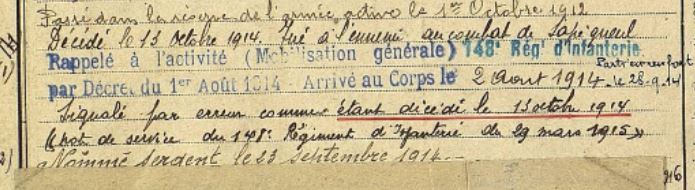 Passé dans la réserve de l'armée active le 1er Octobre 1912
Décédé le 13 Octobre 1914. Tué à l'ennemi au combat de Sapigneul
Rappelé à l'activité (Mobilisation générale) 148e Rég' d'Infanterie
Parti au renfort
par Décret du 1er Août 1914 Arrivé au Corps le 2 août 1914. le 28-9-14
Signalé par erreur comme étant décédé le 13 octobre 1914
(not de service du 148e Régiment d'Infanterie du 29 mars 1915)
Nommé Sergent le 23 septembre 1914.